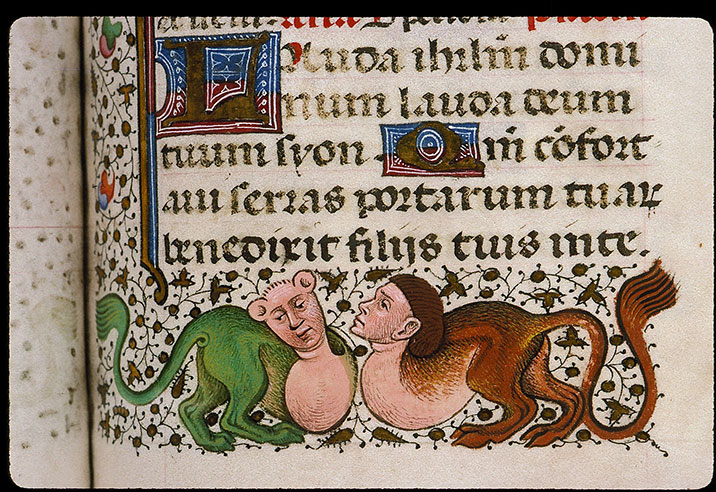 Lauda ihrlm̄ domi
num lauda deum
tuum syon Qm̄ cōfort
auit serras portarum tuaꝝ
benedixit filijs tuis in te.